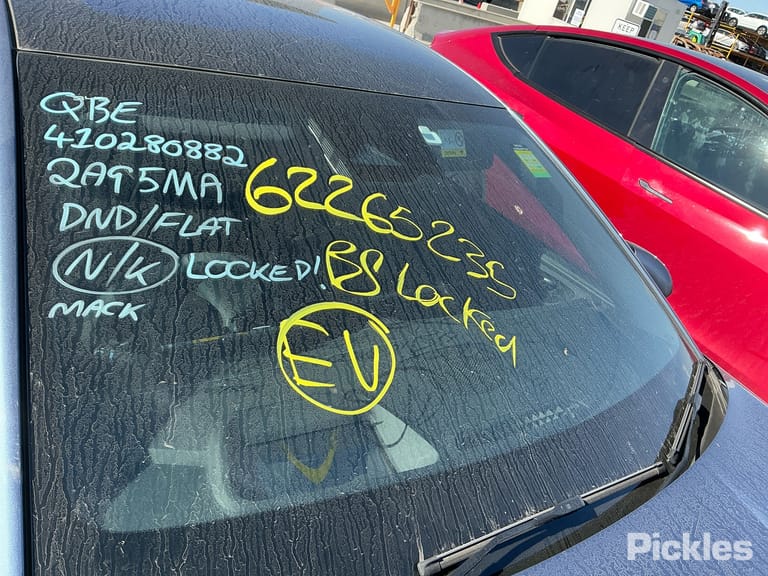 QBE
410280882
2A95MA
DND/FLAT
N/K LOCKED!
MACK
62265235
BS Locked
EV
KEEP
Pickles